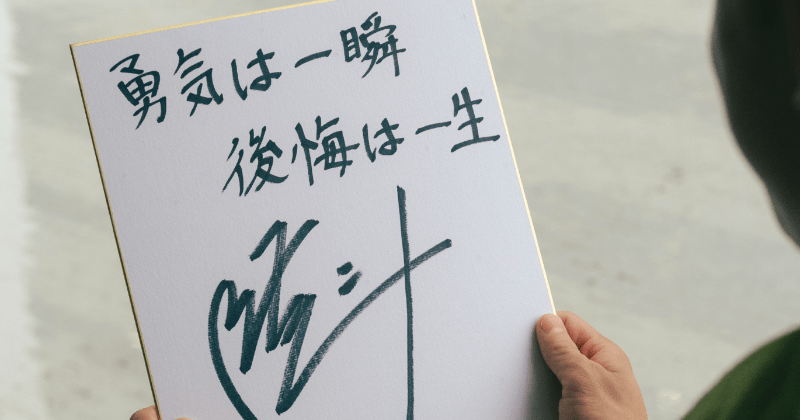 勇気は一瞬
後悔は一生